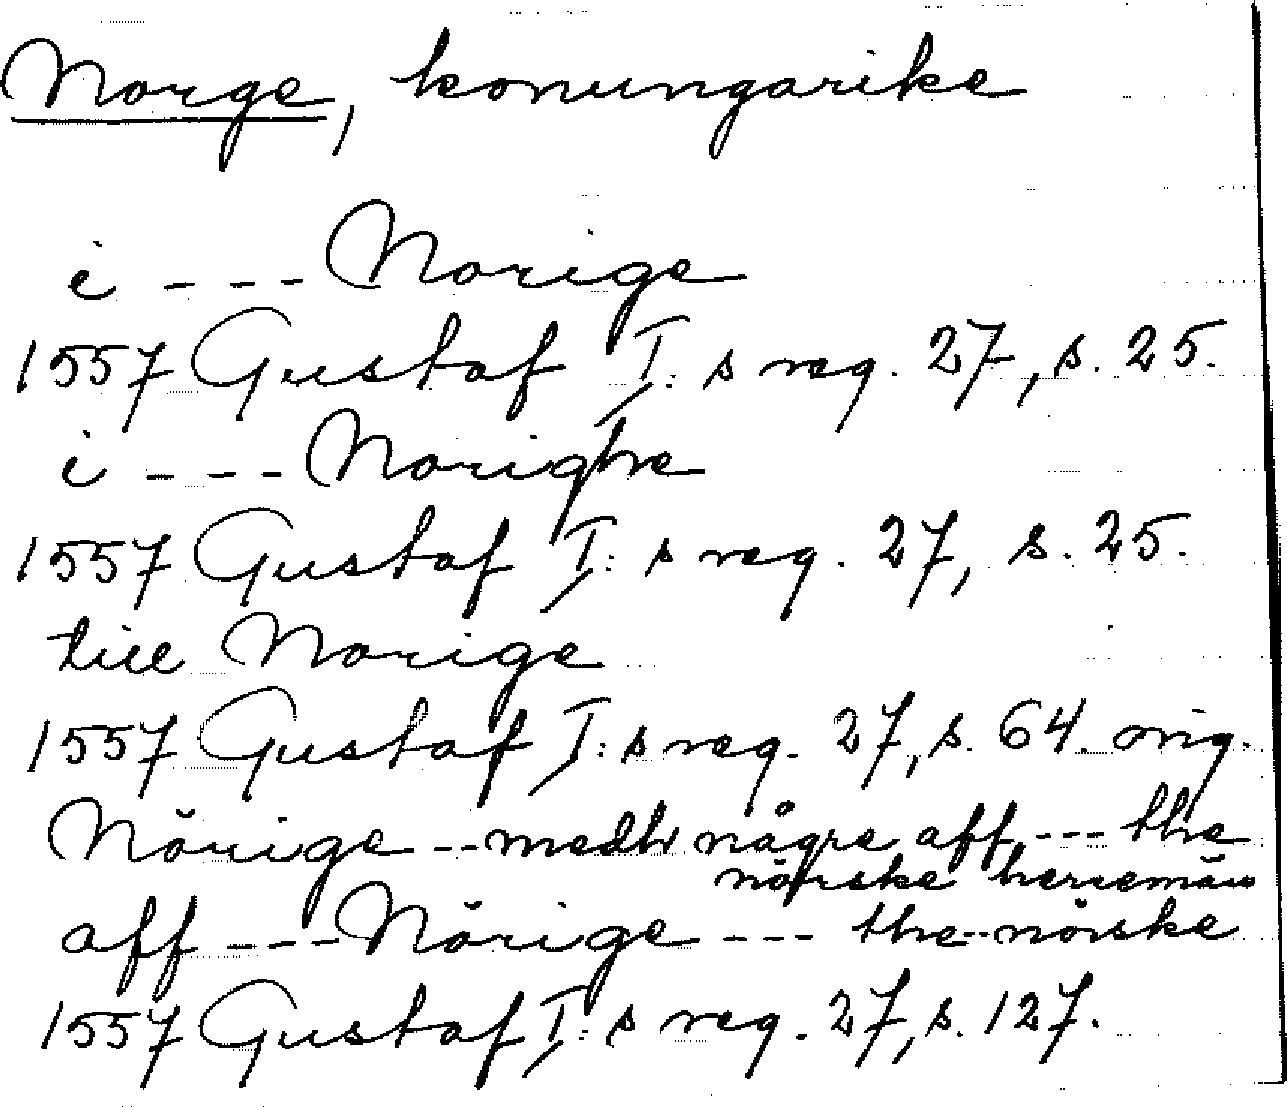 Norge, konungarike
i --- Norige
1557 Gustaf I:s reg. 27, s. 25.
i --- Norighe
1557 Gustaf I:s reg. 27, s. 25.
till Norige
1557 Gustaf I:s reg. 27, s. 64. orig.
Nŏrige -- medh någre aff --- the
nŏrske herremän
aff --- Nŏrige --- the -- nŏrske
1557 Gustaf I:s reg. 27, s. 127.